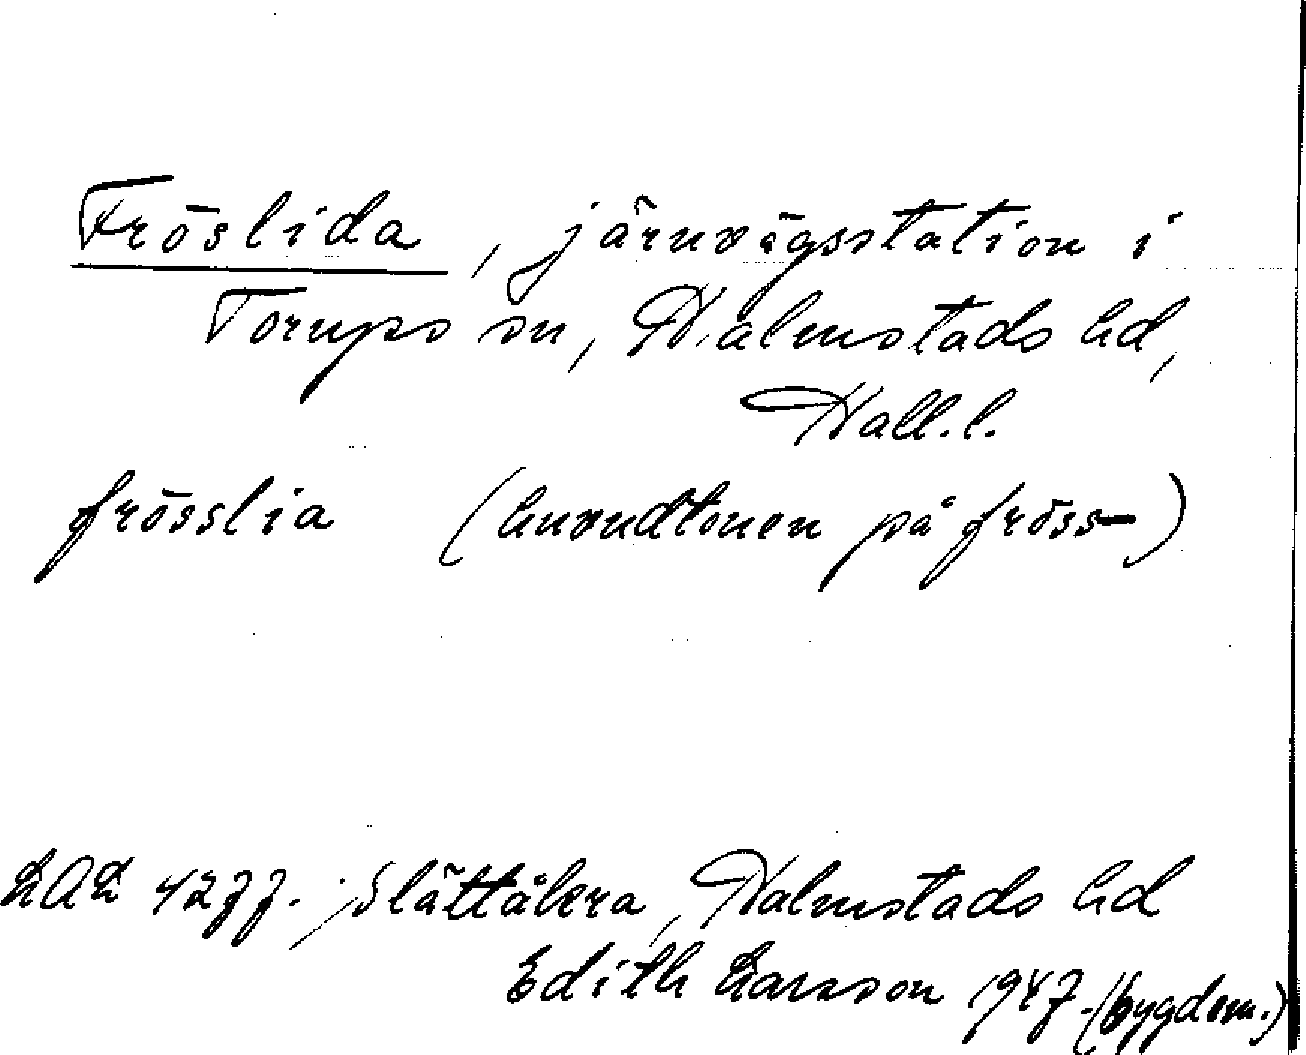 Fröslida, järnvägsstation i
Torups sn, Halmstads hd,
Hall.l.
frösslia (huvudtonen på fröss-)
LAL 4277. Slättåkra, Halmstads hd
Edith Larsson 1947. (bygdem.)